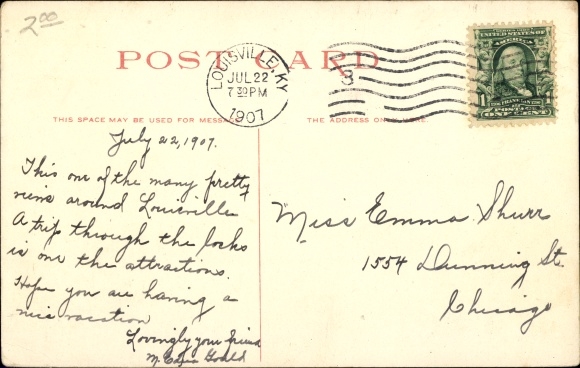 2.00
POST CARD
LOUISVILLE, KY.
JUL 22
7 30 PM
1907
3
UNITED STATES OF
AMERICA
FRANKLIN
1 1
POSTAGE
ONE CENT
THIS SPACE MAY BE USED FOR MESSAGE
THE ADDRESS ONLY HERE.
July 22, 1907.
This one of the many pretty
views around Louisville
A trip through the locks
is one the attractions.
Hope you are having a
nice vacation
Lovingly your friend
M. Gould
Miss Emma Shurr
1554 Dunning St.
Chicago